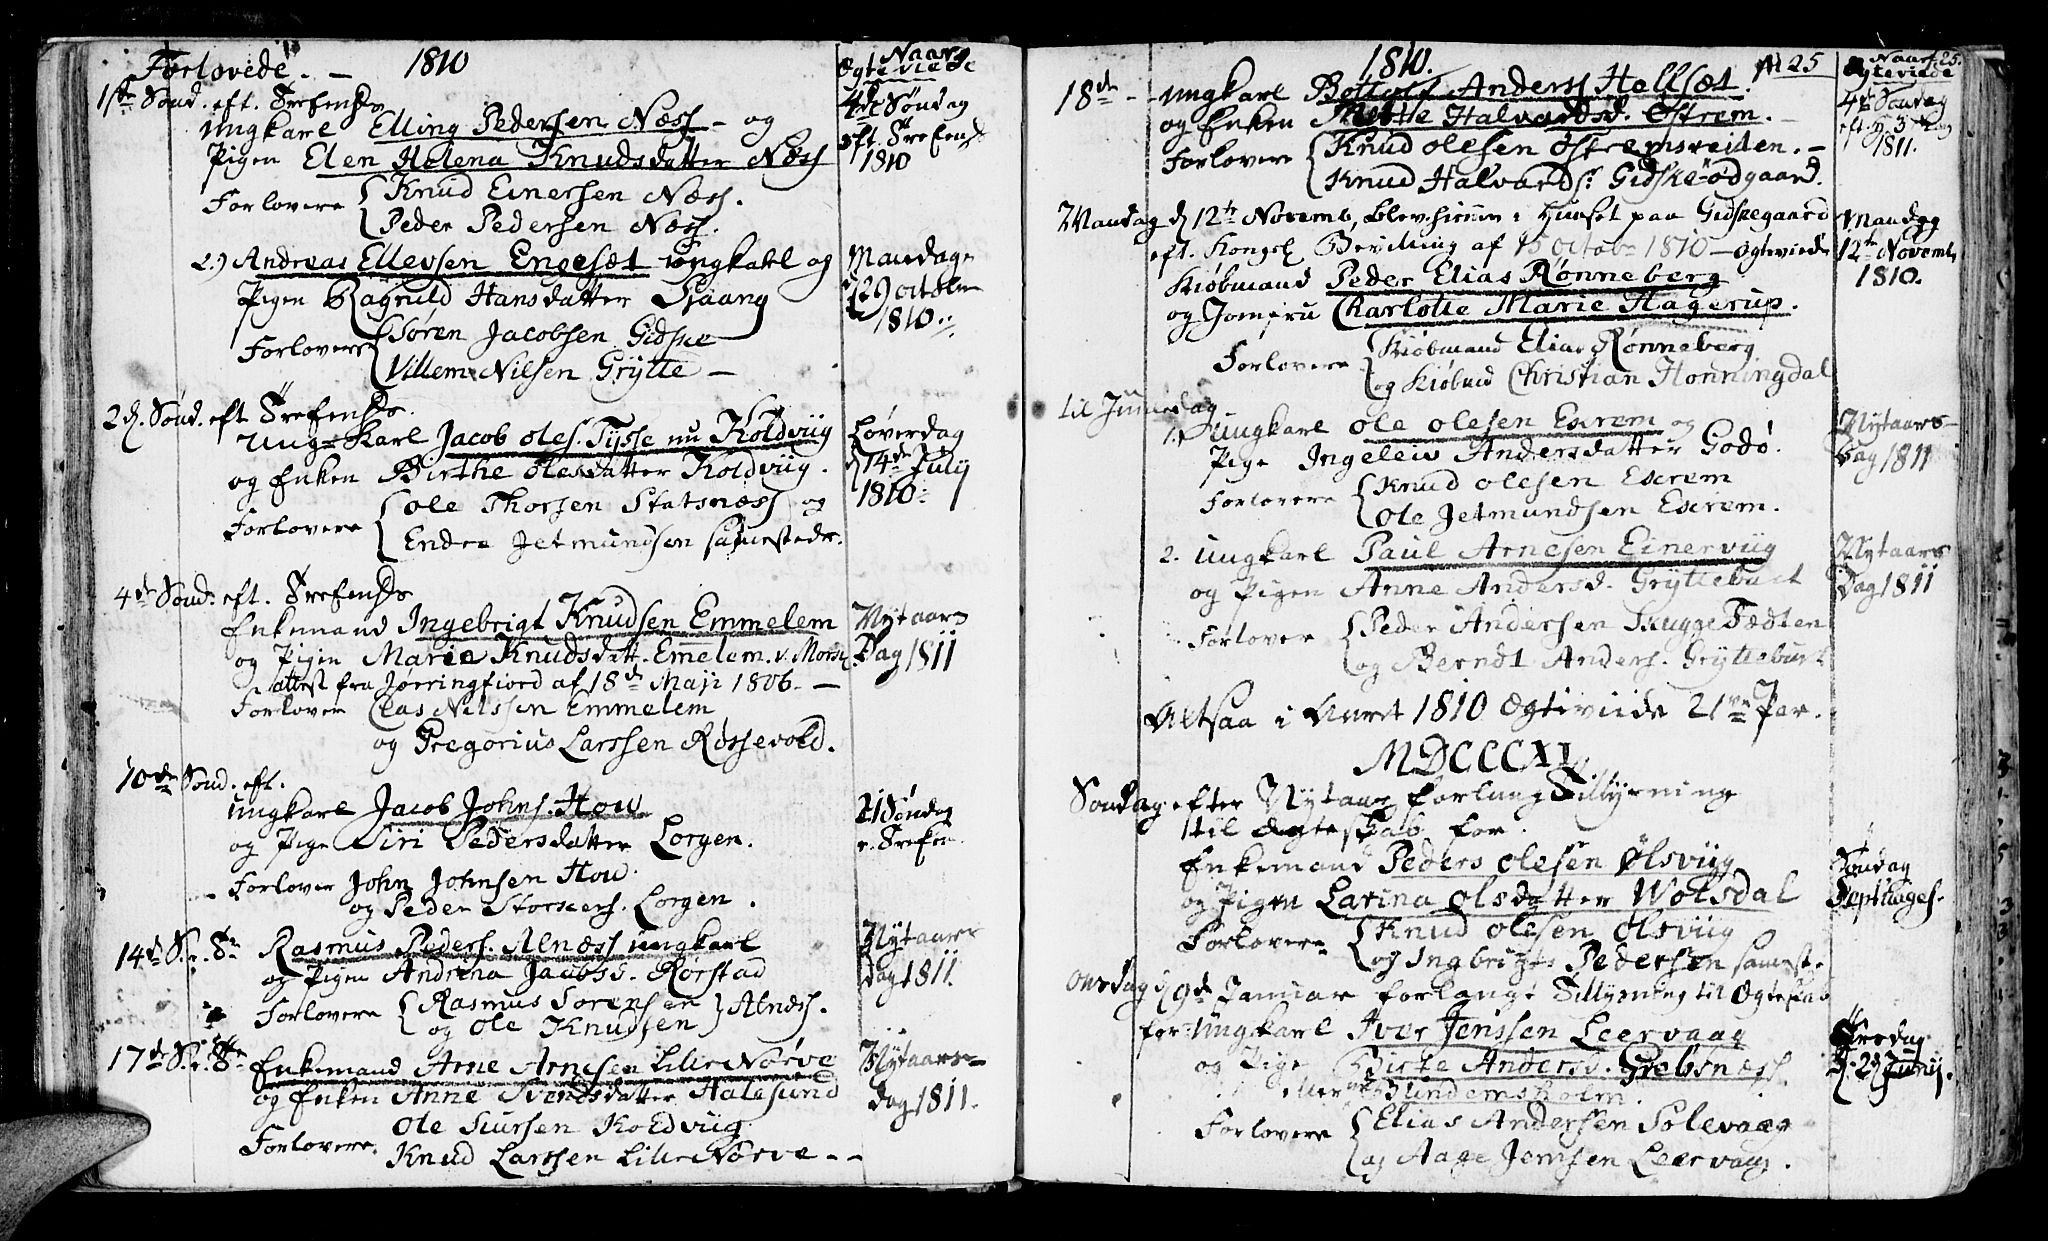 Forlovede. — 1810
Naar Ægteviede
1ste Sønd. eft. Trefends
Ungkarl Elling Pedersen Næss — og
Pigen Elen Helena Knudsdatter Næss
Forlovere Knud Einersen Næss.
Peder Pedersen Næss.
4de Søndag
eft. Trefend
1810
2.) Andreas Ellevsen Engesæt ungkarl og
Pigen Ragnild Hansdatter
Forlovere Søren Jacobsen Gidske
Villem Nilsen Grytte —
Mandag
d 29 octobr
1810.
2d. Sønd. eft Trefends.
Ung-Karl Jacob Oles. Tysse nu Koldviig
og Enken Birthe Olesdatter Koldviig.
Forlovere Ole Thorsen Statsnæss og
Endre Jetmundsen samestedr.
Løverdag
d 14de July
1810.
4de Sønd. eft. Trefends
Enkemand Ingebrigt Knudsen Emmelem
og Pigen Marie Knudsdatt. Emelem. v. Mors.
attest fra Jørringfiord af 18de Maji 1806. —
Forlover Clas Nilssen Emmelem
og Gregorius Larssen Røssevold.
Nytaars
Dag 1811
10de Sønd. eft.
Ungkarl Jacob Johns. How
og Pige Siri Pedersdatter Lorgen.
Forlover John Johnsen How.
og Peder Lorgen.
21 Søndag
e. Trefen
14de S. e. Tr Rasmus Peders. Alnæss ungkarl
og Pigen Andrina Jacobsd. Rørstad
Forlovere Rasmus Sorensen
og Ole Knudsen Alnæss.
Nytaars
dag 1811.
17de S. e. Tr Enkemand Arne Arnesen Lille Nørve
og Enken Anne Svendsdatter Halesund
Ole Siursen Koldviig
Forlovere. Knud Larssen Lille Nørve — -
Nytaars-
dag 1811.
1810. 25
Naar Ægteviede 25.
18de - Ungkarl Anders Hellsæt.
og Enken Mette Halvardsd. Østrem. -
Forlovere Knud Olesen Østremsreiten. —
Knud Halvards: Gidske-ødgaard.
4de Søndag
1811.
Mandag d 12te Novemb, blev hiemme i Huuset paa Gidskegaard
eft. Kongel Bevilling af 15 octobr 1810 — Ægteviede
Kiøbmand Peder Elias Rønneberg
og Jomfru Charlotte Marie Hagerup.
Forlovere Kiøbmand Elias Rønneberg
og Kiøbmd Christian Honningdal
Mandag
12te Novemb
1810.
til Juuledag
1. Ungkarl Ole Olesen Exrem og
Pige Ingeleiv Andersdatter Godø.
Forlovere Knud Olesen Exrem
Ole Jetmundsen Exrem.
Nytaars-
Dag 1811
2. Ungkarl Paul Arnesen Einerviig
og Pigen Anne Andersd. Gryttebust
Forlover Peder Andersen
og Berndt Anders. Gryttebust
Nytaars
Dag 1811
Altsaa i Aaret 1810 Ægteviide 21ve Par.
MDCCCXI.
Søndag efter Nytaar forlang Tillysning
til Ægteskab for.
Enkemand Peders Olesen Ølsviig
og Pigen Larina Olsdatter Wolsdal
Forlovere Knud Olesen Ølsviig
og Ingbrigt Pedersen samest.
Søndag
Septuages.
Onsdag d 9de Januar forlangt Tillysning til Ægteskab
for Ungkarl Iver Jenssen Leervaag
og Pige Birte Andersd. Grebsnæss.
eller Blindemsholm.
Forlovere Elias Andersen Solevaag
og Aage Jensen Leervaag.
Tirsdag
d. 2d Junij.